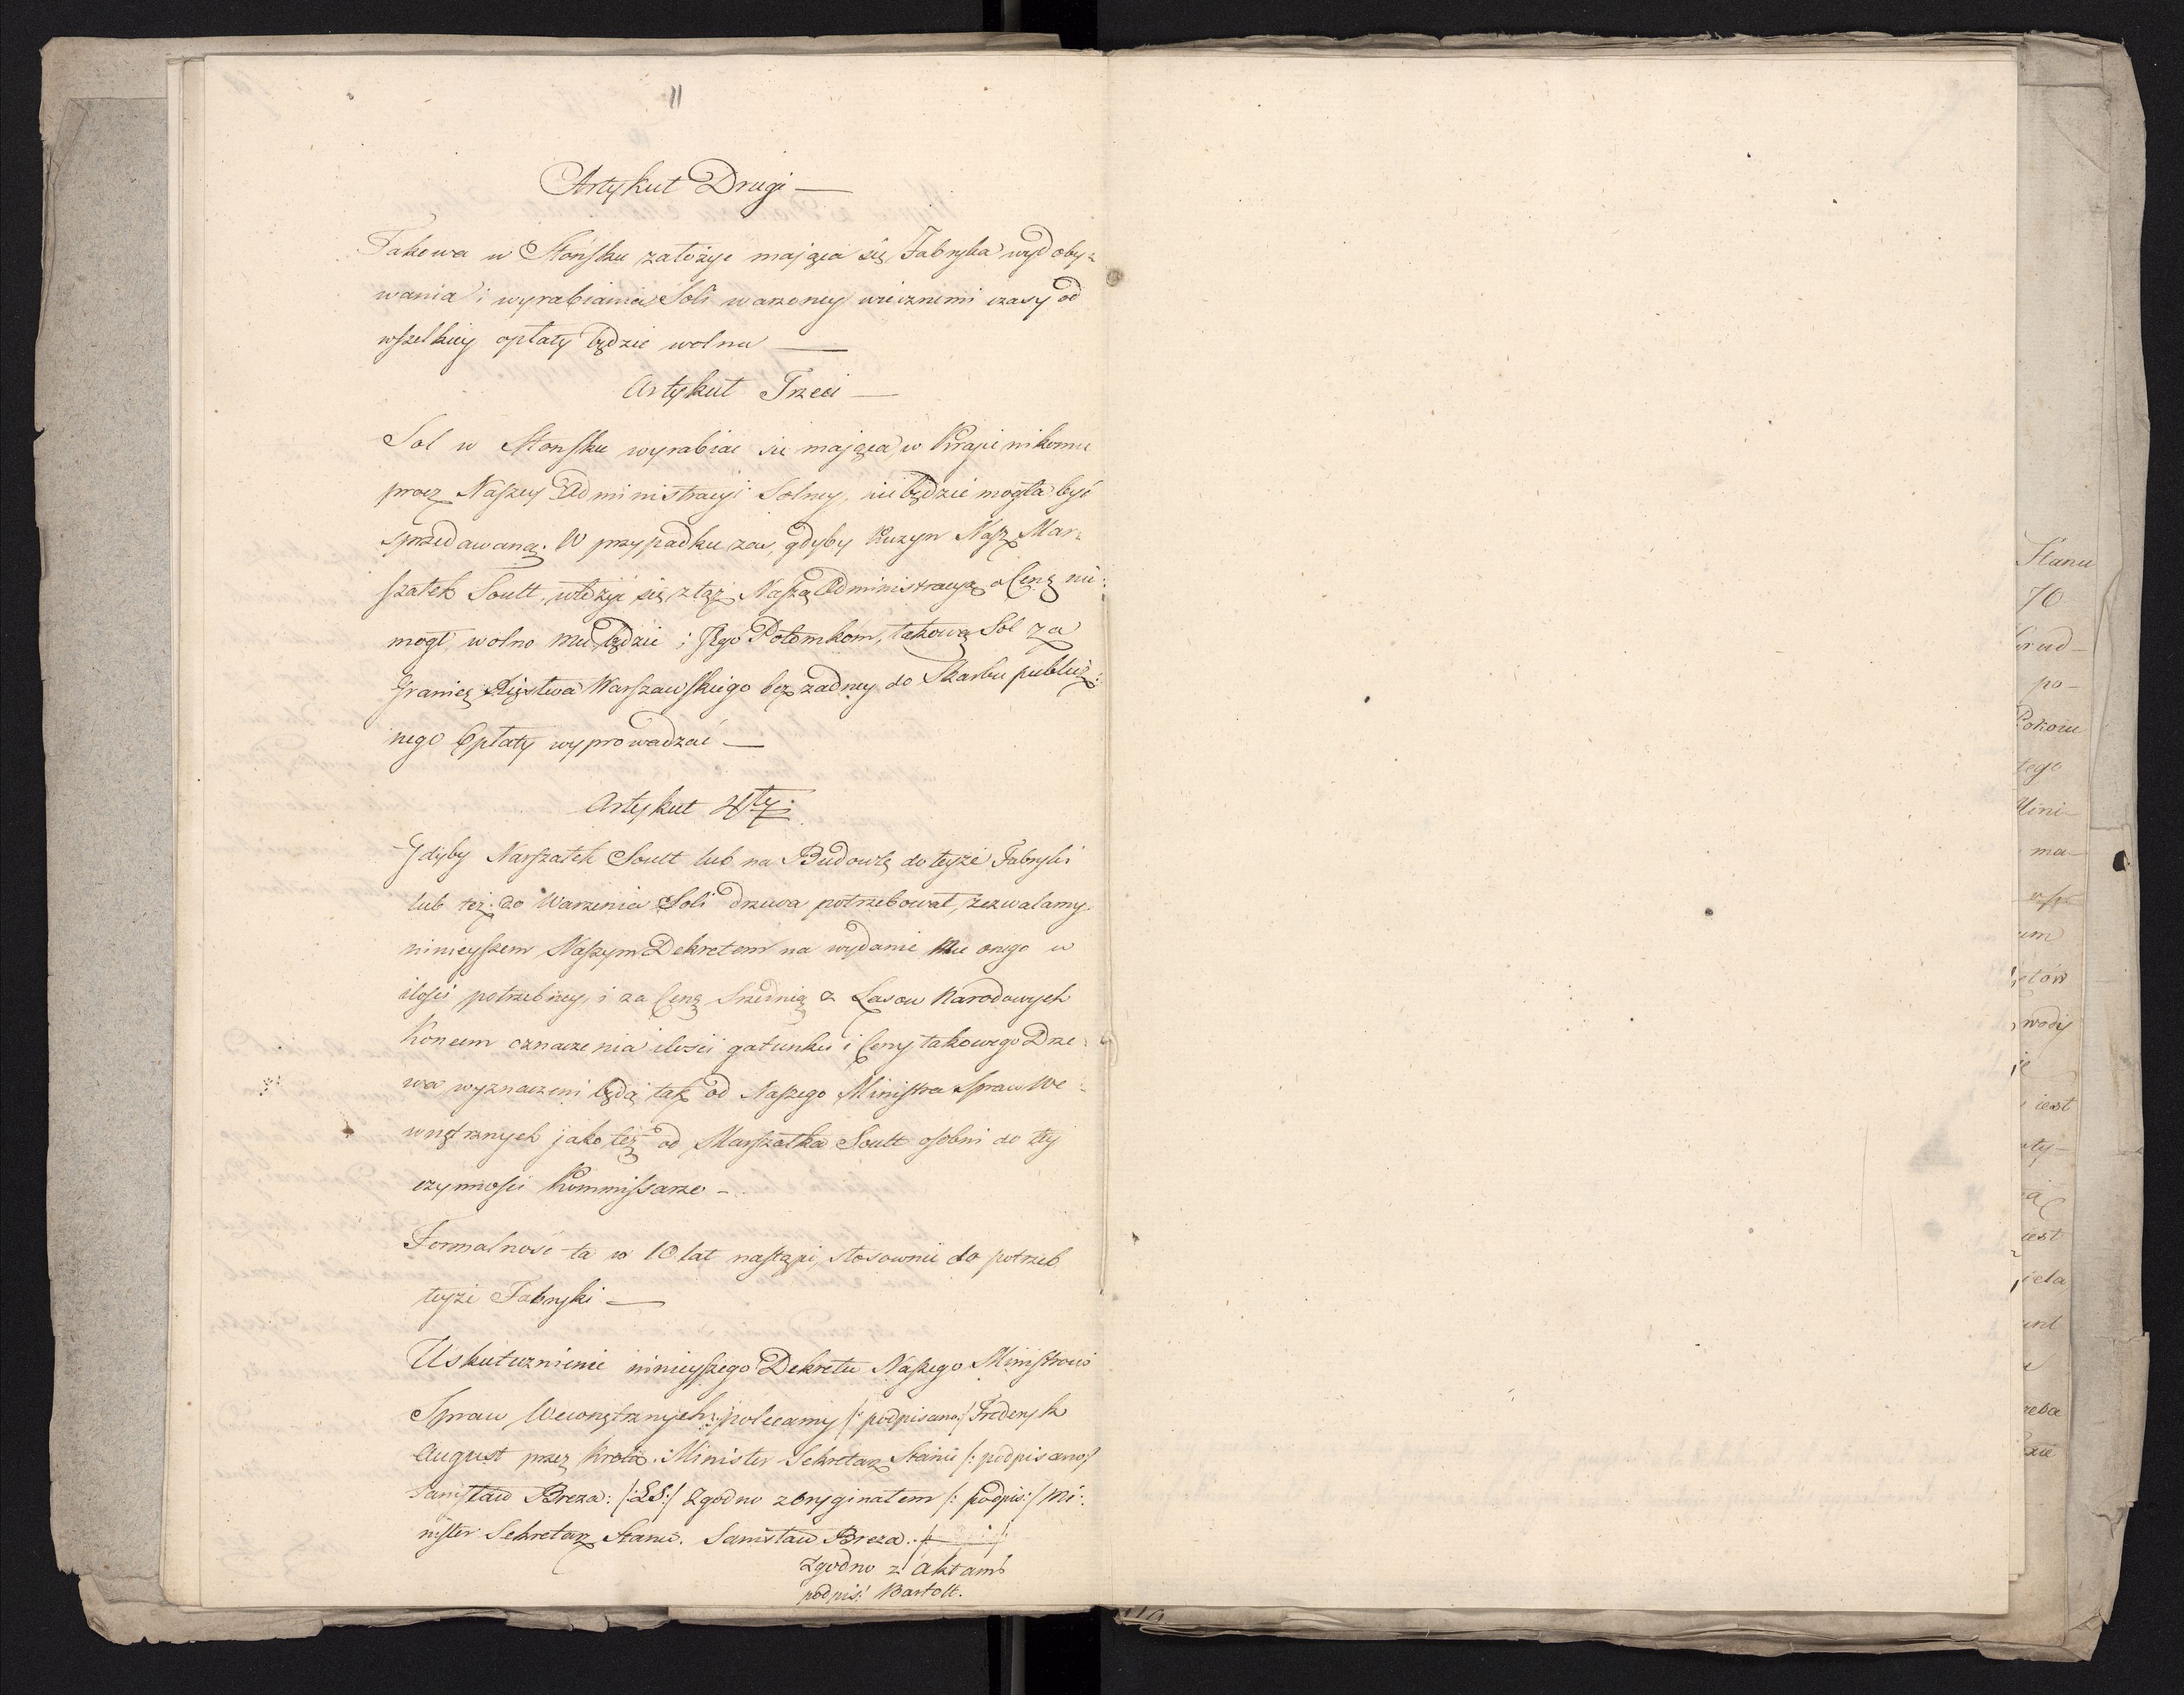 11
Artykuł Drugi —
Takowa w Słońsku założyć mająca się Fabryka wydoby=
wania i wyrabiania Soli warzoney wiecznemi czasy od
wszelkiey opłaty będzie wolna —
Artykuł Trzeci —
Sol w Słonsku wyrabiac się mająca w Kraju nikomu
procz Naszey Administracyi Solney, nie będzie mogła być
sprzedawaną. W przypadku zas, gdyby Kuzyn Nasz Mar=
szałek Soult, ułożyć się z tąż Naszą Administracyą o Cenę nie:
mogł, wolno mu będzie i Jego Potomkom, takową Sol za
Granicę Xięstwa Warszawskiego bez żadney do Skarbu publicz:
nego Opłaty wyprowadzać —
Artykuł 4ty.
Gdyby Marszałek Soult lub na Budowlę do teyże Fabryki
lub też do Warzenia Soli drzewa potrzebował, zezwalamy
ninieyszem Naszym Dekretem na wydanie mu onego w
ilości potrzebney, i za Cenę Srzednią z Lasow Narodowych
Koncem oznaczenia ilości gatunku i Ceny takowego Drze=
wa wyznaczeni będą tak od Naszego Ministra Spraw We=
wnętrznych jako też od Marszałka Soult osobni do tey
czynności Kommissarze —
Formalność ta w 10 lat nastąpi, stosownie do potrzeb
teyże Fabryki —
Uskutecznienie ninieyszego Dekretu Naszego Ministrowi
Spraw Wewnętrznych polecamy /: podpisano:/ Fryderyk
August przez Krola: Minister Sekretarz Stanu /: podpisano:/
Stanisław Breza: /:LS:/ Zgodno z Oryginałem /: podpis:/ Mi:
nister Sekretarz Stanu. Stanisław Breza.
Zgodno z aktami
podpis: Bartolt.
Stanu
70
po—
Pokoiu
tego
Mini—
ma—
wody
iest
iest